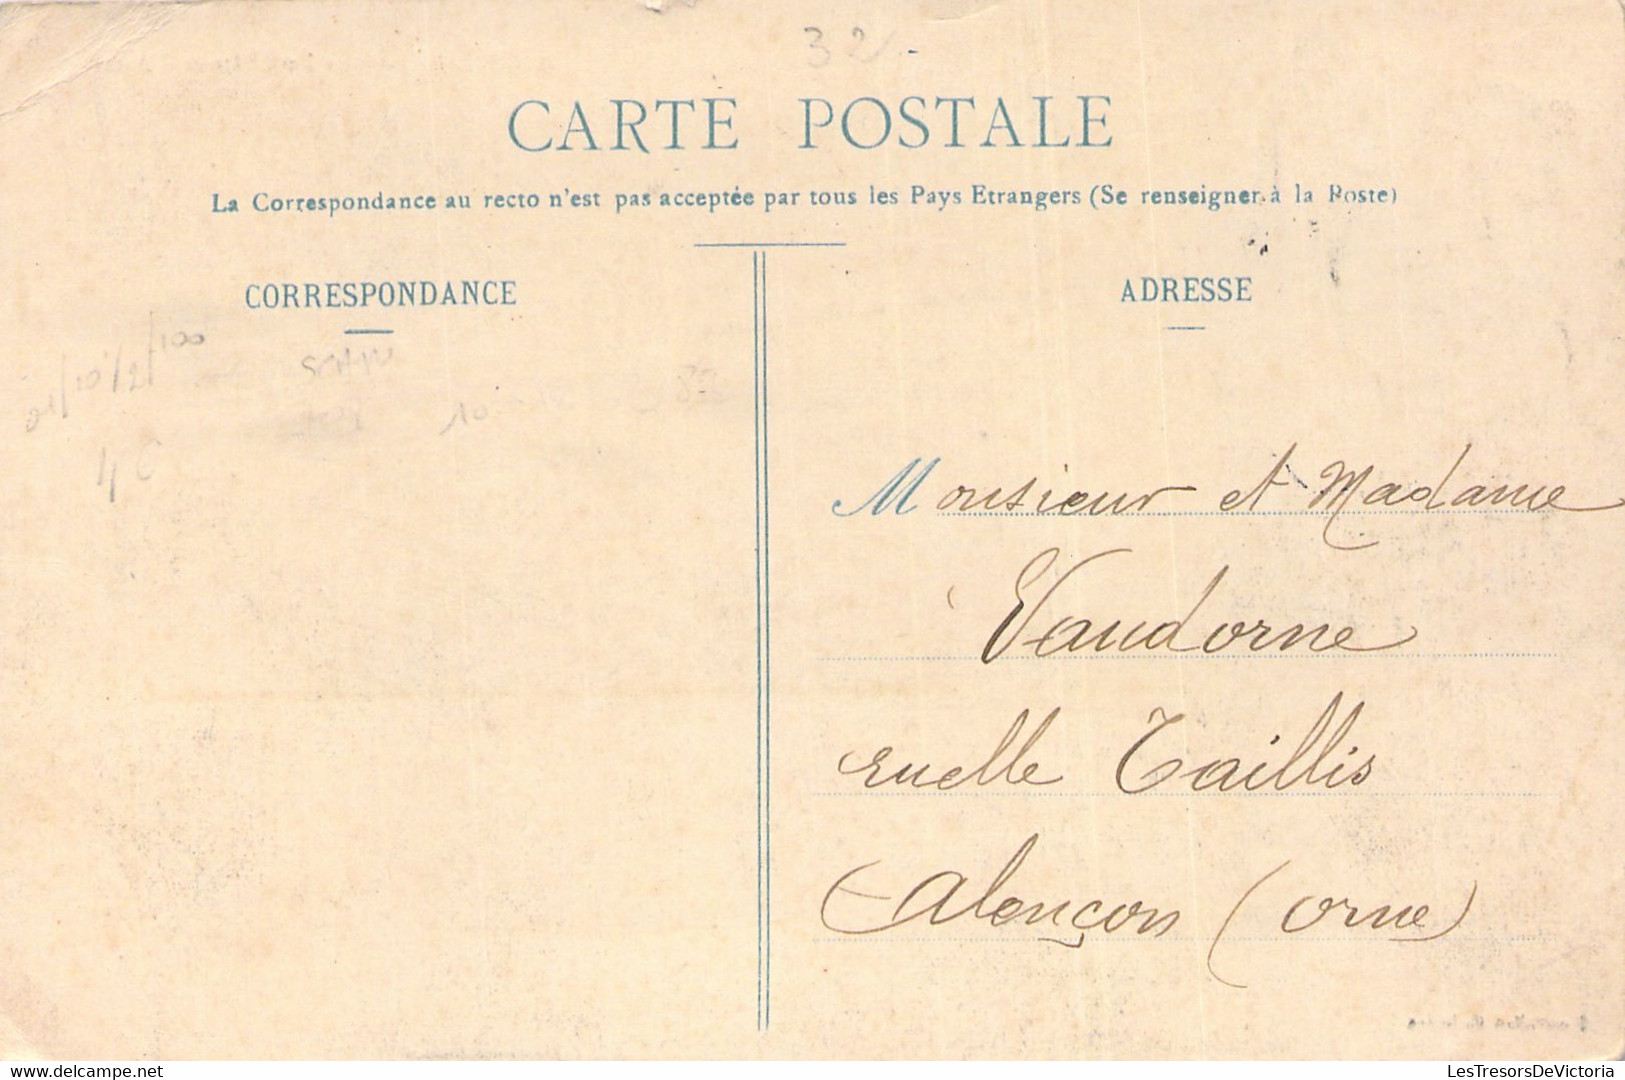 32
CARTE POSTALE
La Correspondance au recto n'est pas acceptée par tous les Pays Etrangers (Se renseigner à la Poste)
CORRESPONDANCE
ADRESSE
10
4 €
Monsieur et Madame
Vaudorne
ruelle Taillis
Alençon (Orne)
delcampe.net
LesTresorsDeVictoria